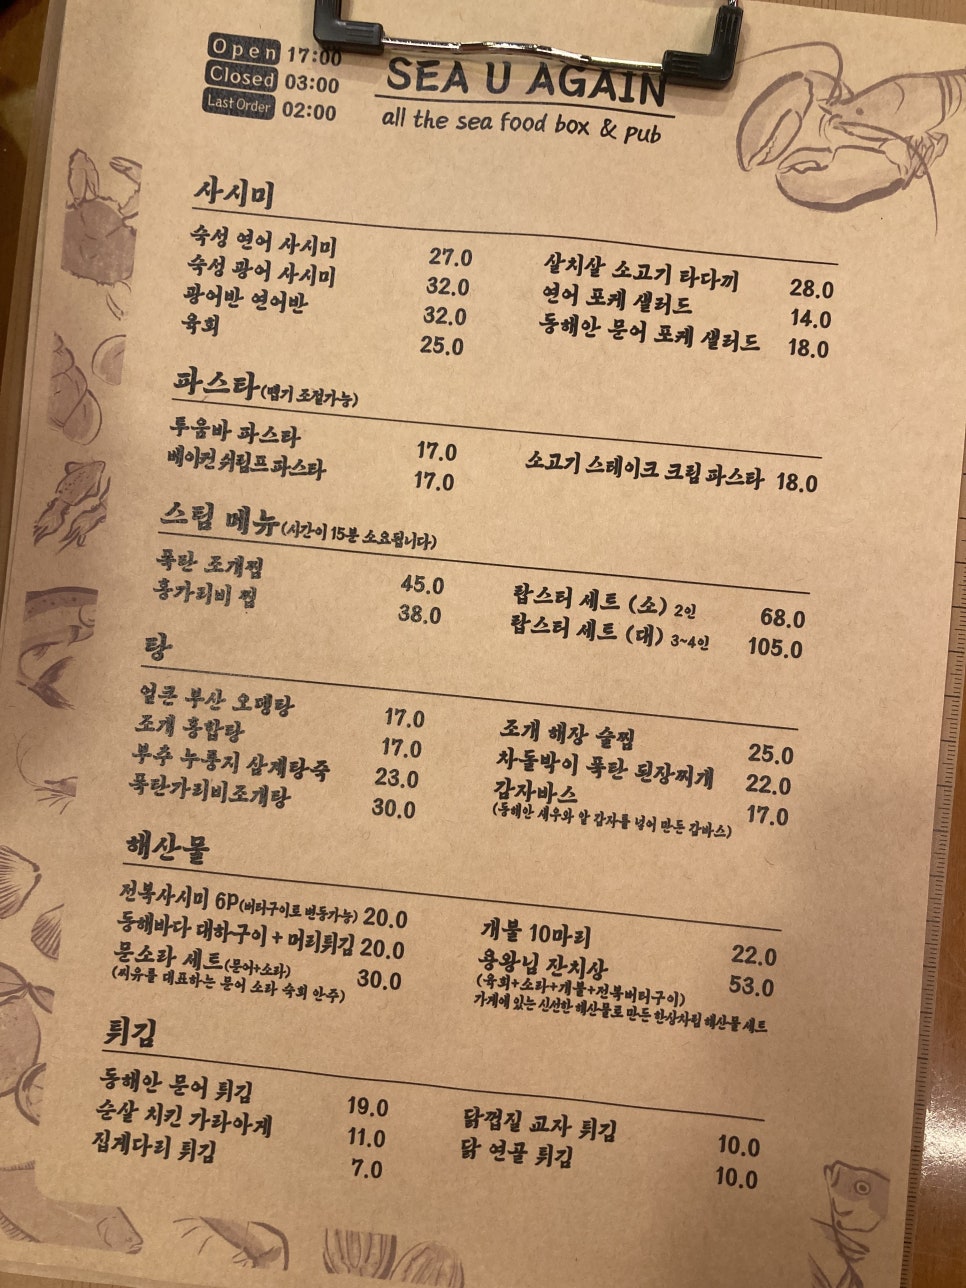 Open 17:00
Closed 03:00
Last Order 02:00
SEA U AGAIN
all the sea food box & pub
사시미
숙성 연어 사시미 27.0
숙성 광어 사시미 32.0
광어반 연어반 32.0
육회 25.0
살치살 소고기 타다끼 28.0
연어 포케 샐러드 14.0
동해안 문어 포케 샐러드 18.0
파스타(맵기 조절가능)
투움바 파스타 17.0
베이컨 쉬림프 파스타 17.0
소고기 스테이크 크림 파스타 18.0
스팀 메뉴(시간이 15분 소요됩니다)
폭탄 조개찜 45.0
홍가리비 찜 38.0
랍스터 세트 (소) 2인 68.0
랍스터 세트 (대) 3~4인 105.0
탕
얼큰 부산 오뎅탕 17.0
조개 홍합탕 17.0
부추 누룽지 삼계탕죽 23.0
폭탄가리비조개탕 30.0
조개 해장 술찜 25.0
차돌박이 폭탄 된장찌개 22.0
감자바스 17.0
(동해안 새우와 알 감자를 넣어 만든 감바스)
해산물
전복사시미 6P(버터구이로 변동가능) 20.0
동해바다 대하구이 + 머리튀김 20.0
문소라 세트(문어+소라) 30.0
(씨유를 대표하는 문어 소라 숙회 안주)
개불 10마리 22.0
용왕님 잔치상 53.0
(육회+소라+개불+전복버터구이)
가게에 있는 신선한 해산물로 만든 한상차림 해산물 세트
튀김
동해안 문어 튀김 19.0
순살 치킨 가라아게 11.0
집게다리 튀김 7.0
닭껍질 교자 튀김 10.0
닭 연골 튀김 10.0